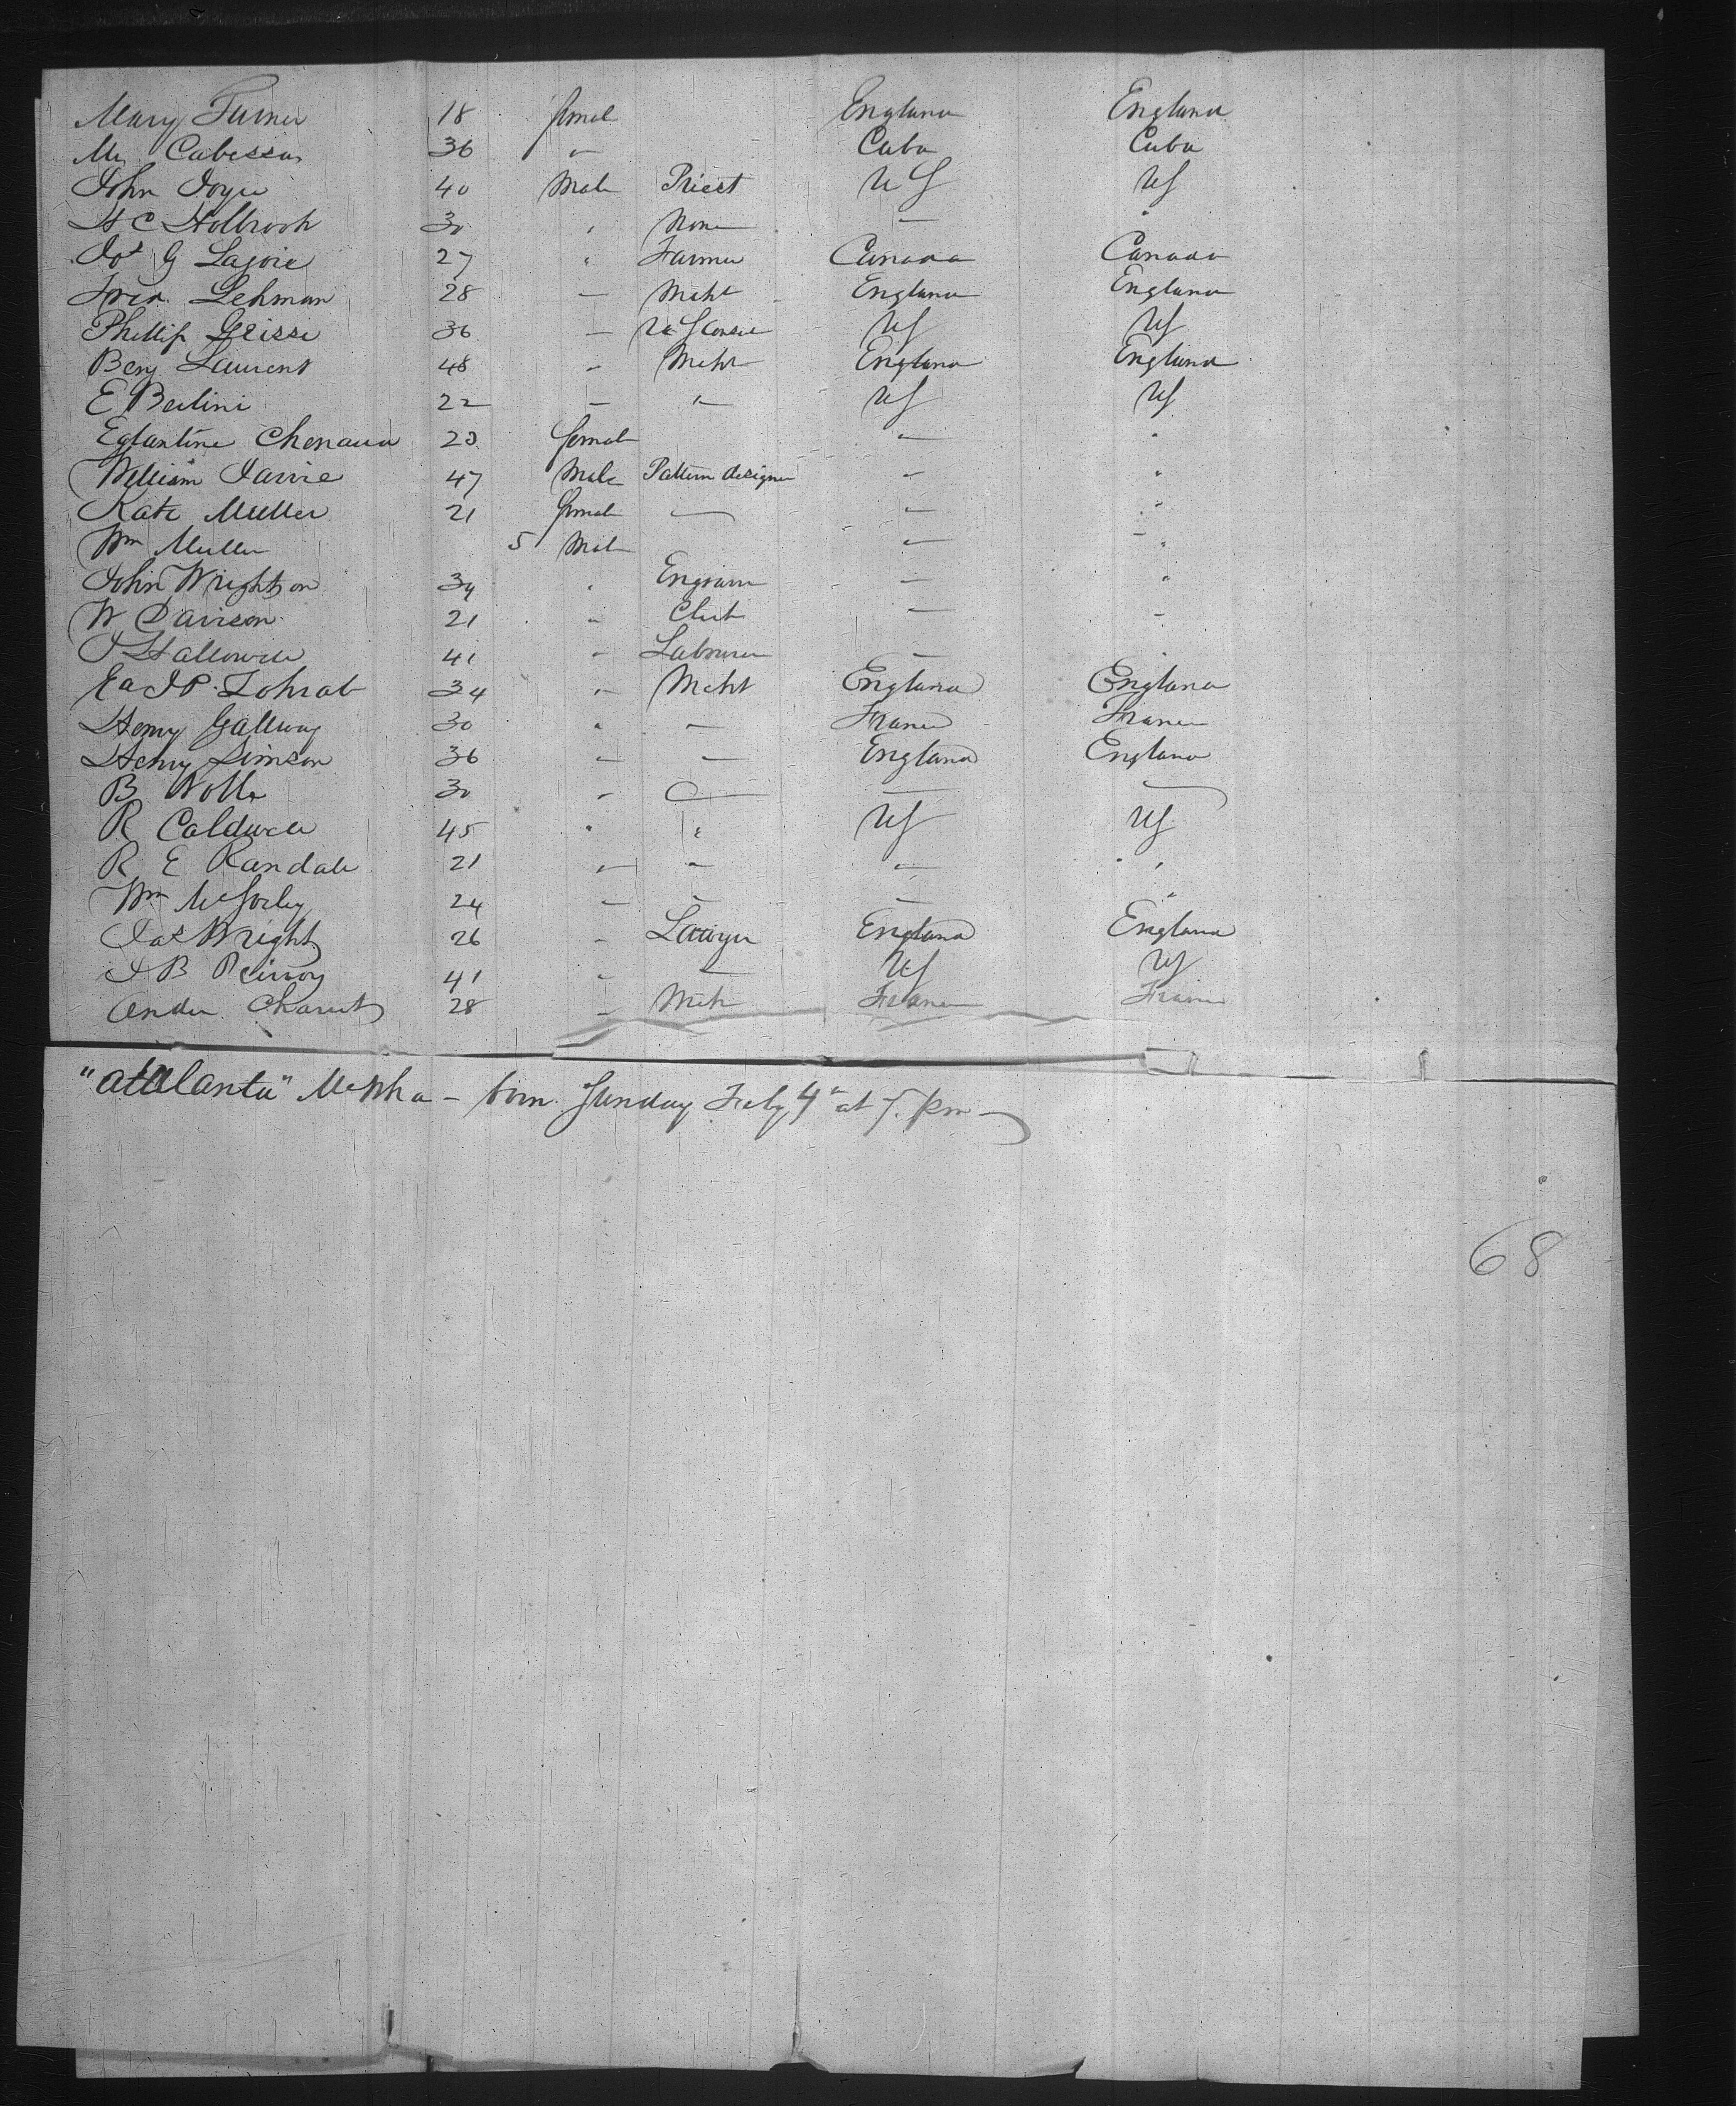 Mary Turner 18 female England England
Mrs Cabessa 36 " Cuba Cuba
John Joyce 40 Male Priest US US
H C Holbrook 30 " None " "
Jos G Lajoie 27 " Farmer Canada Canada
Fred Lehman 28 " Mcht England England
Phillip Geissi 36 " US Consul US US
Benj Laurent 48 " Mcht England England
E Berlini 22 " " US US
Eglantine 20 female " "
William Jarvie 47 Male Pattern designer " "
Kate Muller 21 female — " "
Wm Muller 5 Male " "
John Wrightson 34 " Engraver " "
W Davison 21 " Clerk " "
J Hallowell 41 " Labourer " "
Ed J P. Zohrab 34 " Mcht England England
Henry Gallway 30 " " France France
Henry Simson 36 " " England England
B Nolle 30 " " " "
R Caldwell 45 " " US US
R E Randall 21 " " " "
Wm McSorley 24 " " " "
Jas Wright 26 " Lawyer England England
J B 41 " " US US
28 " Mcht France France
"Atalanta" born Sunday Feby 4th at 7. pm
68